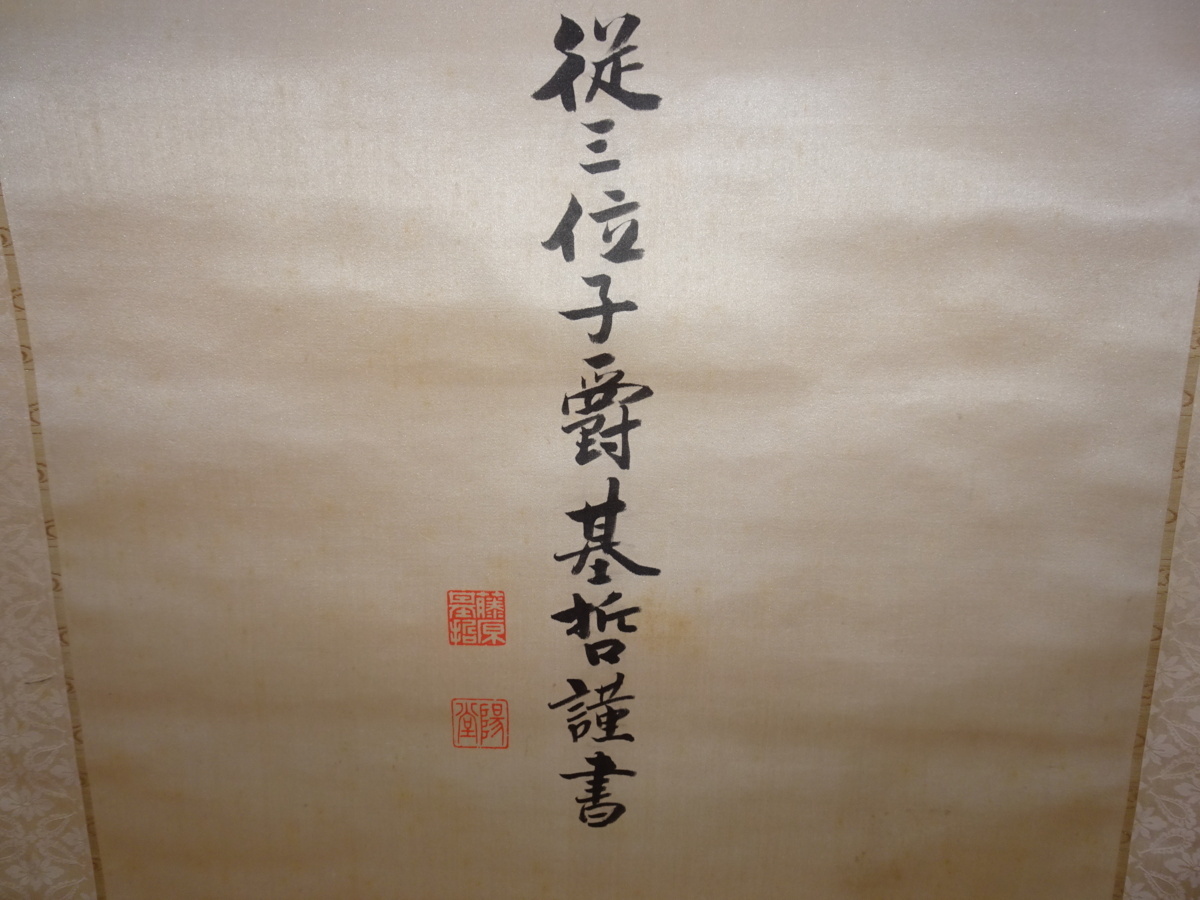 従三位子爵基哲謹書
藤原基哲
陽堂